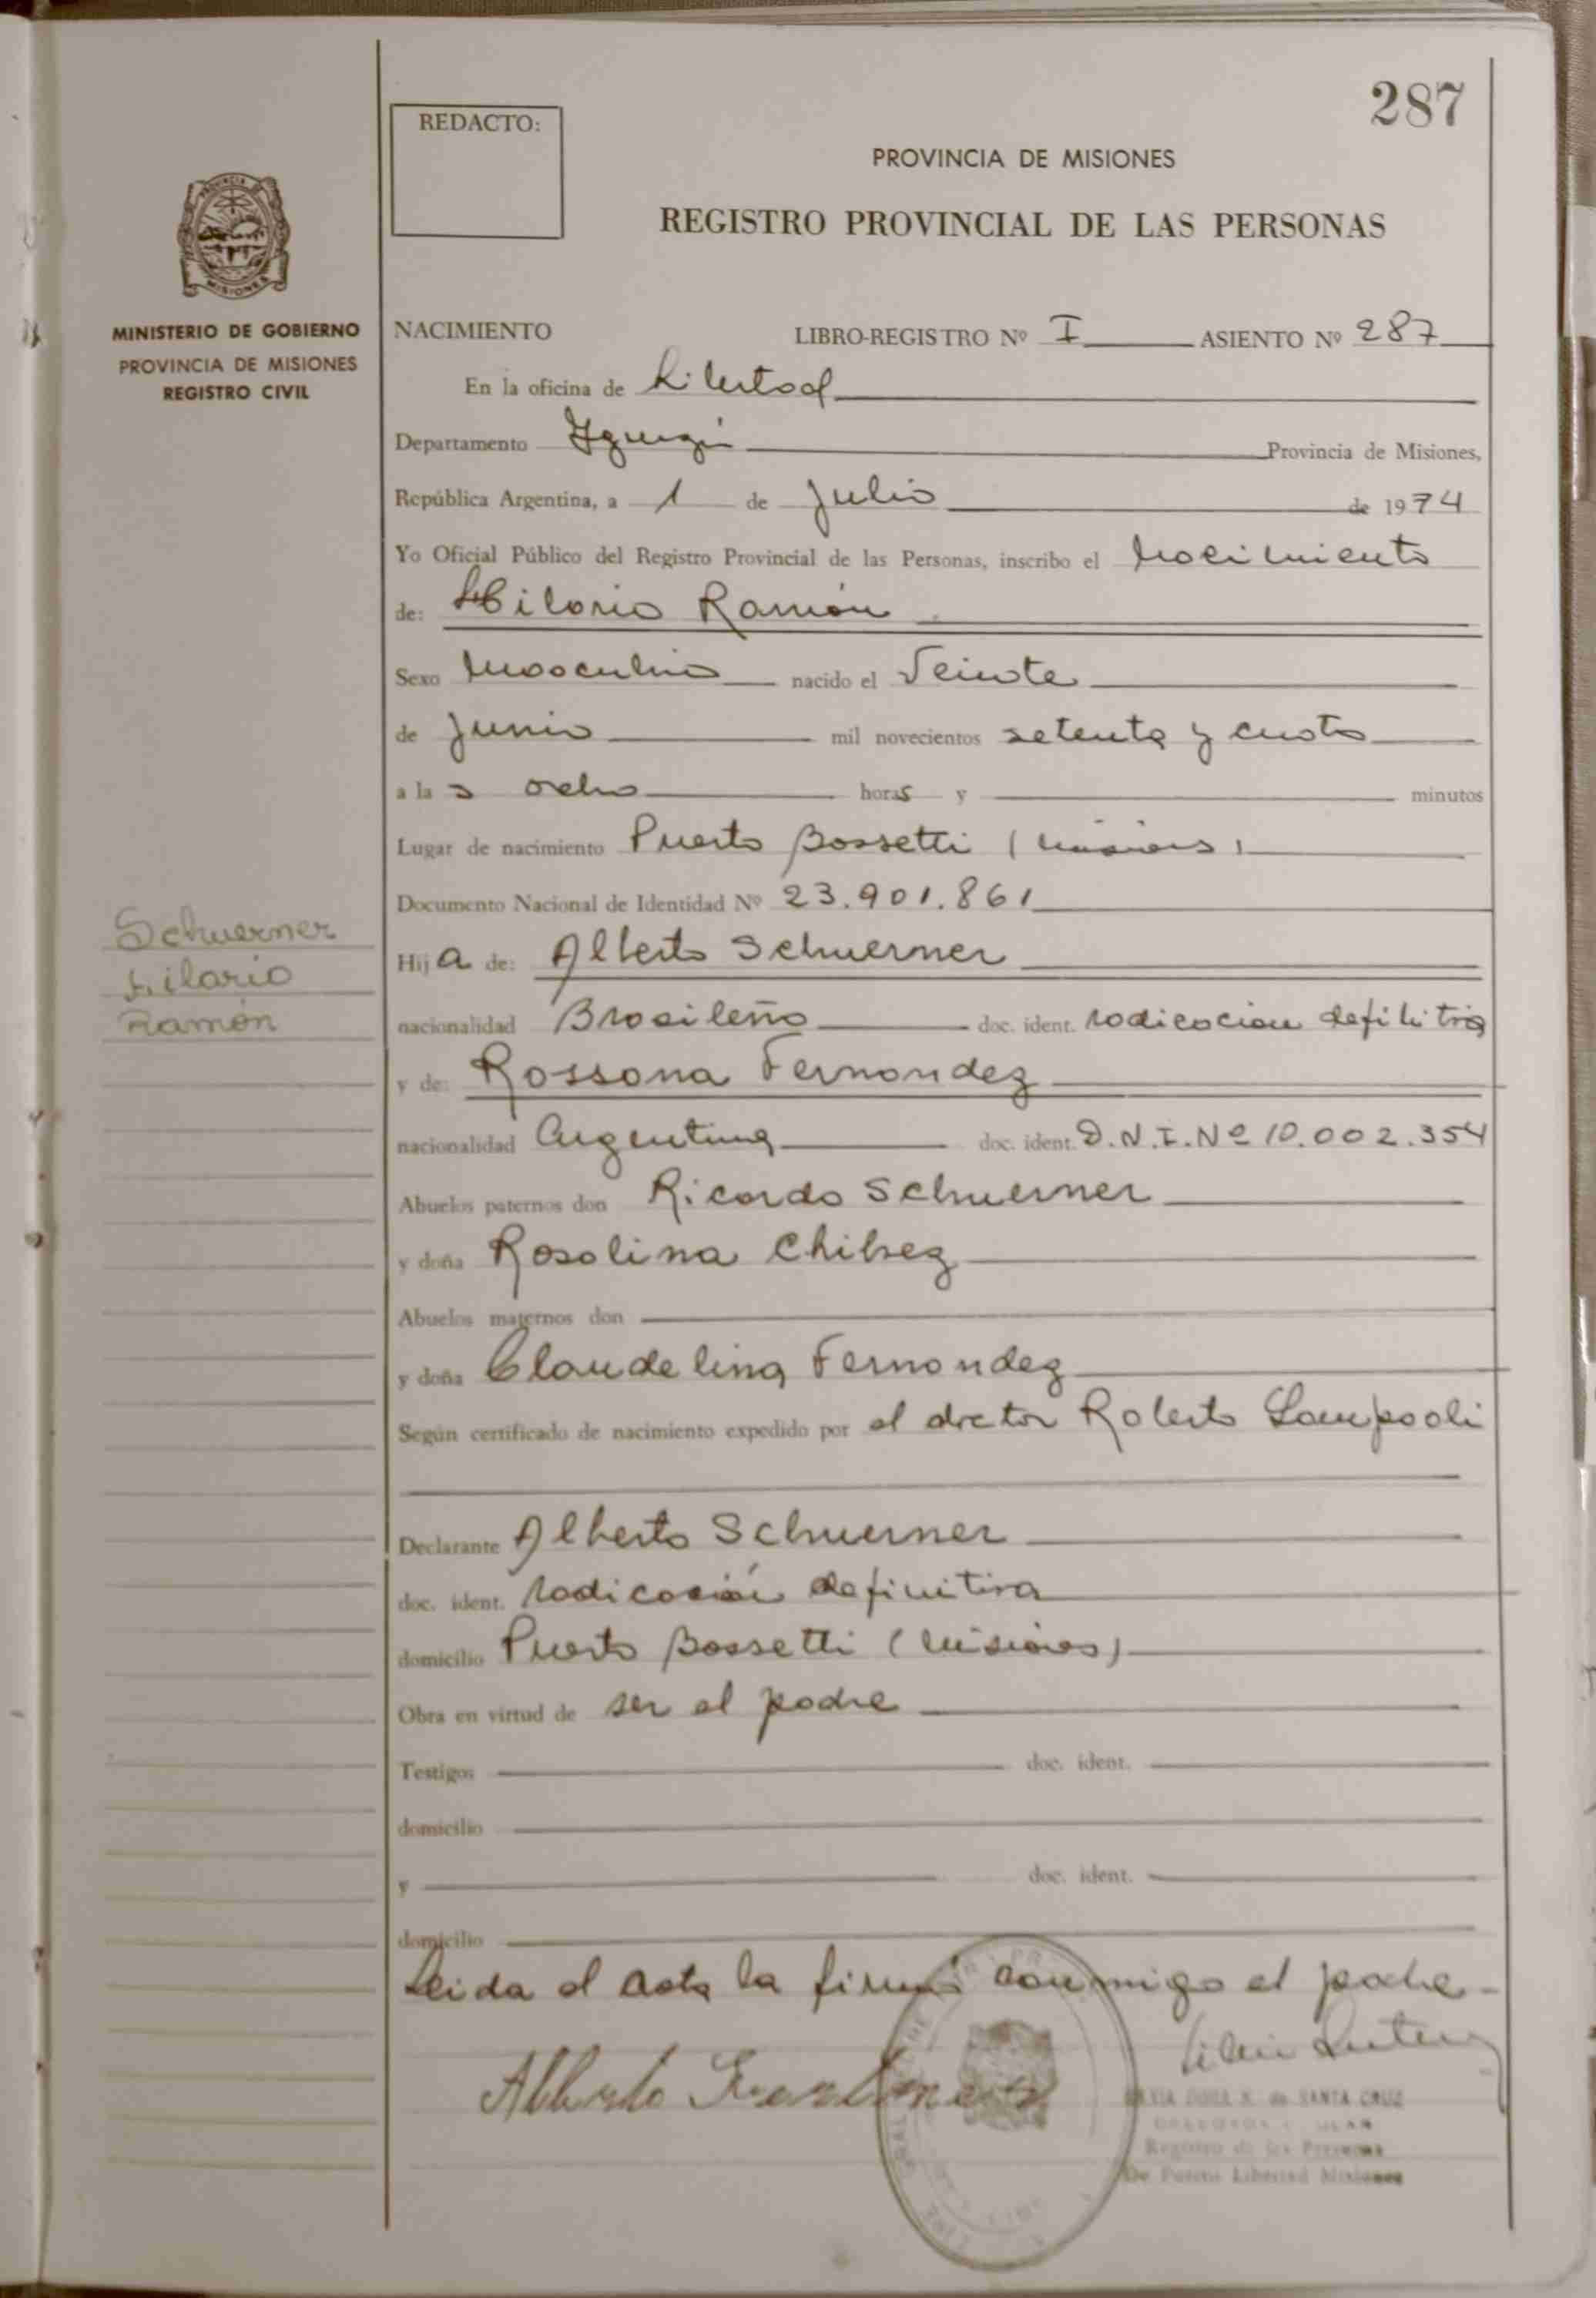 287
REDACTO:
PROVINCIA DE MISIONES
REGISTRO PROVINCIAL DE LAS PERSONAS
MINISTERIO DE GOBIERNO
PROVINCIA DE MISIONES
REGISTRO CIVIL
NACIMIENTO LIBRO-REGISTRO Nº I ASIENTO Nº 287
En la oficina de Libertad
Departamento Iguazú Provincia de Misiones,
República Argentina, a 1 de Julio de 1974
Yo Oficial Público del Registro Provincial de las Personas, inscribo el Nacimiento
de: Hilario Ramón
Sexo Masculino nacido el Veinte
de Junio mil novecientos setenta y cuatro
a las ocho horas y minutos
Lugar de nacimiento Puerto Bossetti (Misiones)
Documento Nacional de Identidad Nº 23.901.861
Schuerner
Hilario
Ramón
Hij a de: Alberto Schuerner
nacionalidad Brasileño doc. ident. radicacion definitiva
y de: Rossana Fernandez
nacionalidad Argentina doc. ident. D.N.I.Nº 10.002.354
Abuelos paternos don Ricardo Schuerner
y doña Rosalina
Abuelos maternos don
y doña Claudelina Fernandez
Según certificado de nacimiento expedido por el doctor Roberto
Declarante Alberto Schuerner
doc. ident. radicación definitiva
domicilio Puerto Bossetti (Misiones)
Obra en virtud de ser el padre
Testigos doc. ident.
domicilio
y doc. ident.
domicilio
Leida el acta la firma conmigo el padre -
Alberto
de SANTA CRUZ
Registro de las Personas
De Puerto Libertad Misiones